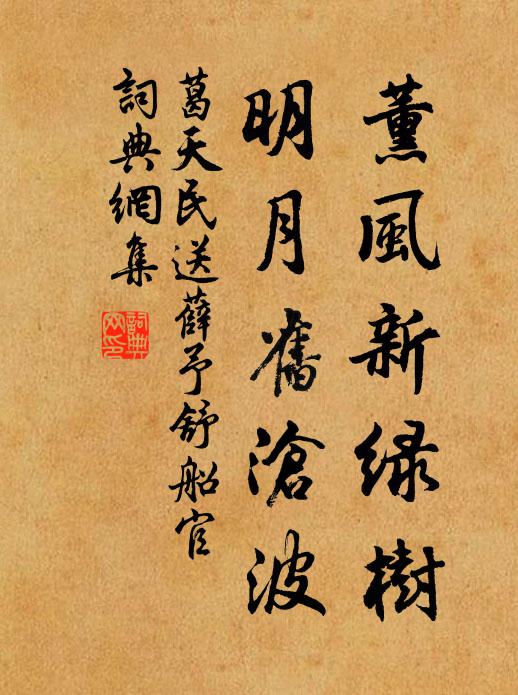 薰風新绿樹
明月舊滄波
葛天民送薛予舒船官
詞典網集
詞典網印